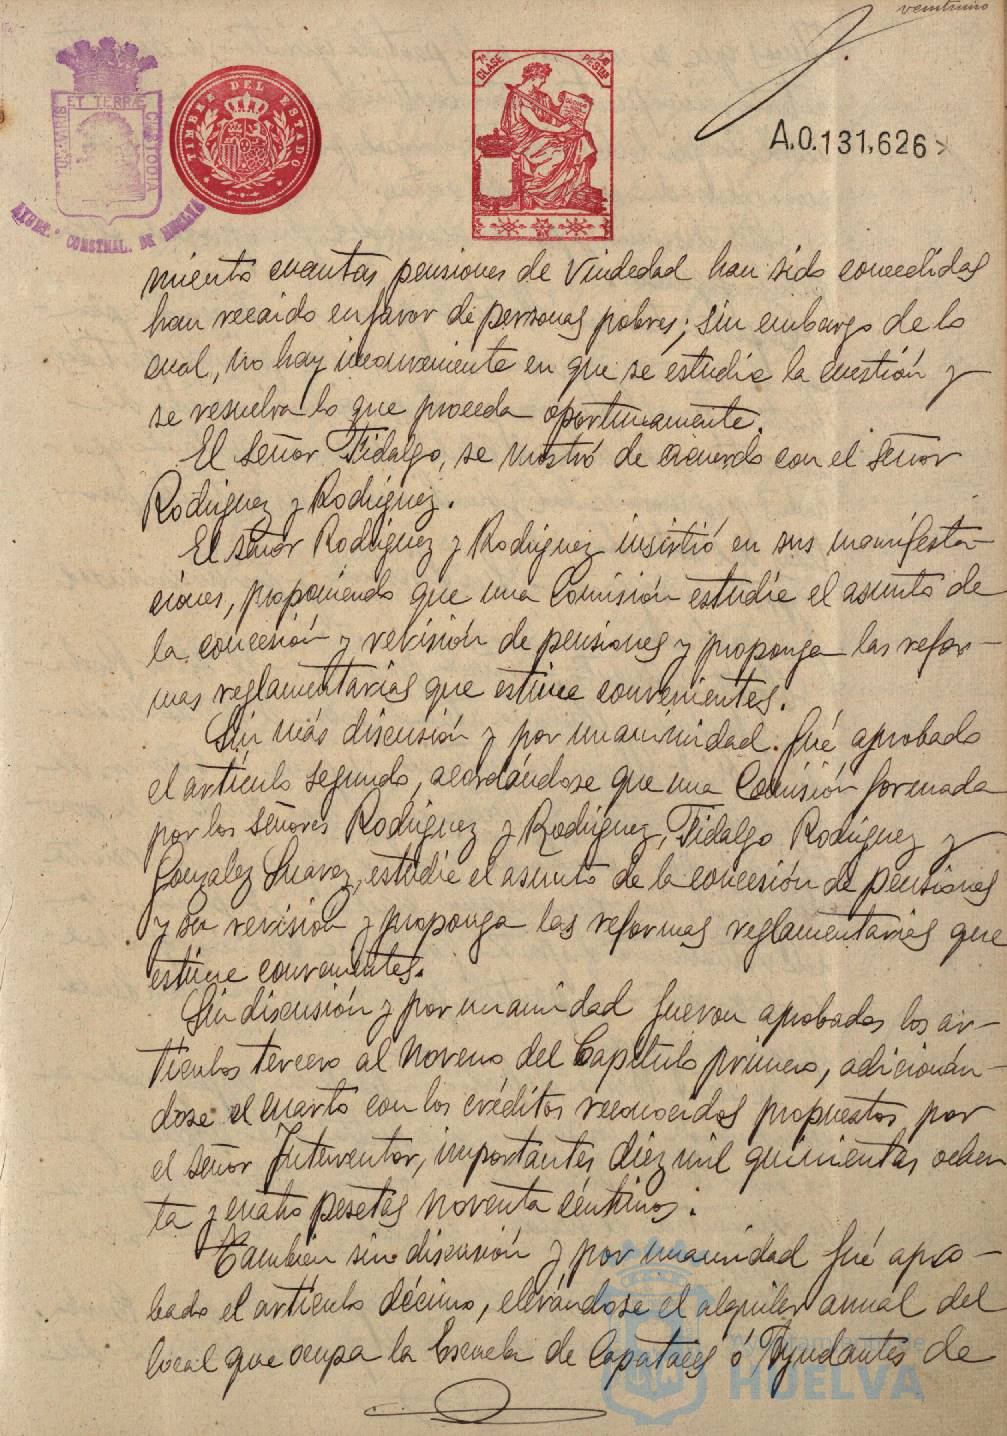 veintiuno
PORTUS MARIS ET TERRÆ CUSTODIA
AYUNT.º CONSTNAL. DE HUELVA
TIMBRE DEL ESTADO
7ª CLASE
PESETAS
A.0.131,626
miento cuantas pensiones de viudedad han sido concedidas
han recaido en favor de personas pobres; sin embargo de lo
cual, no hay inconveniente en que se estudie la cuestión y
se resuelva lo que proceda oportunamente.
El señor Fidalgo, se mostró de acuerdo con el señor
Rodriguez y Rodriguez.
El señor Rodriguez y Rodriguez insistió en sus manifesta-
ciones, proponiendo que una Comisión estudie el asunto de
la concesión y revisión de pensiones y proponga las refor-
mas reglamentarias que estime convenientes.
Sin más discusión y por unanimidad fué aprobado
el artículo segundo, acordándose que una Comisión formada
por los señores Rodriguez y Rodriguez, Fidalgo Rodriguez y
Gonzalez Suarez, estudie el asunto de la concesión de pensiones
y su revisión y proponga las reformas reglamentarias que
estime convenientes.
Sin discusión y por unanimidad fueron aprobados los ar-
tículos tercero al noveno del Capítulo primero, adicionán-
dose el cuarto con los créditos reconocidos propuestos por
el señor Interventor, importantes diez mil quinientas ochen
ta y cuatro pesetas noventa céntimos.
Tambien sin discusión y por unanimidad fué apro-
bado el artículo décimo, elevándose el alquiler anual del
local que ocupa la Escuela de Capataces ó Ayudantes de
Ayuntamiento de
HUELVA